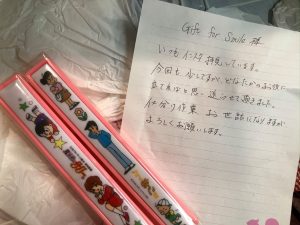 Gift for Smile 様
いつもインスタ拝見しています。
今回も少しですが、どなたかのお役に
立てればと思い送らせて頂きました。
仕分け作業 お世話になりますが
よろしくお願いします。